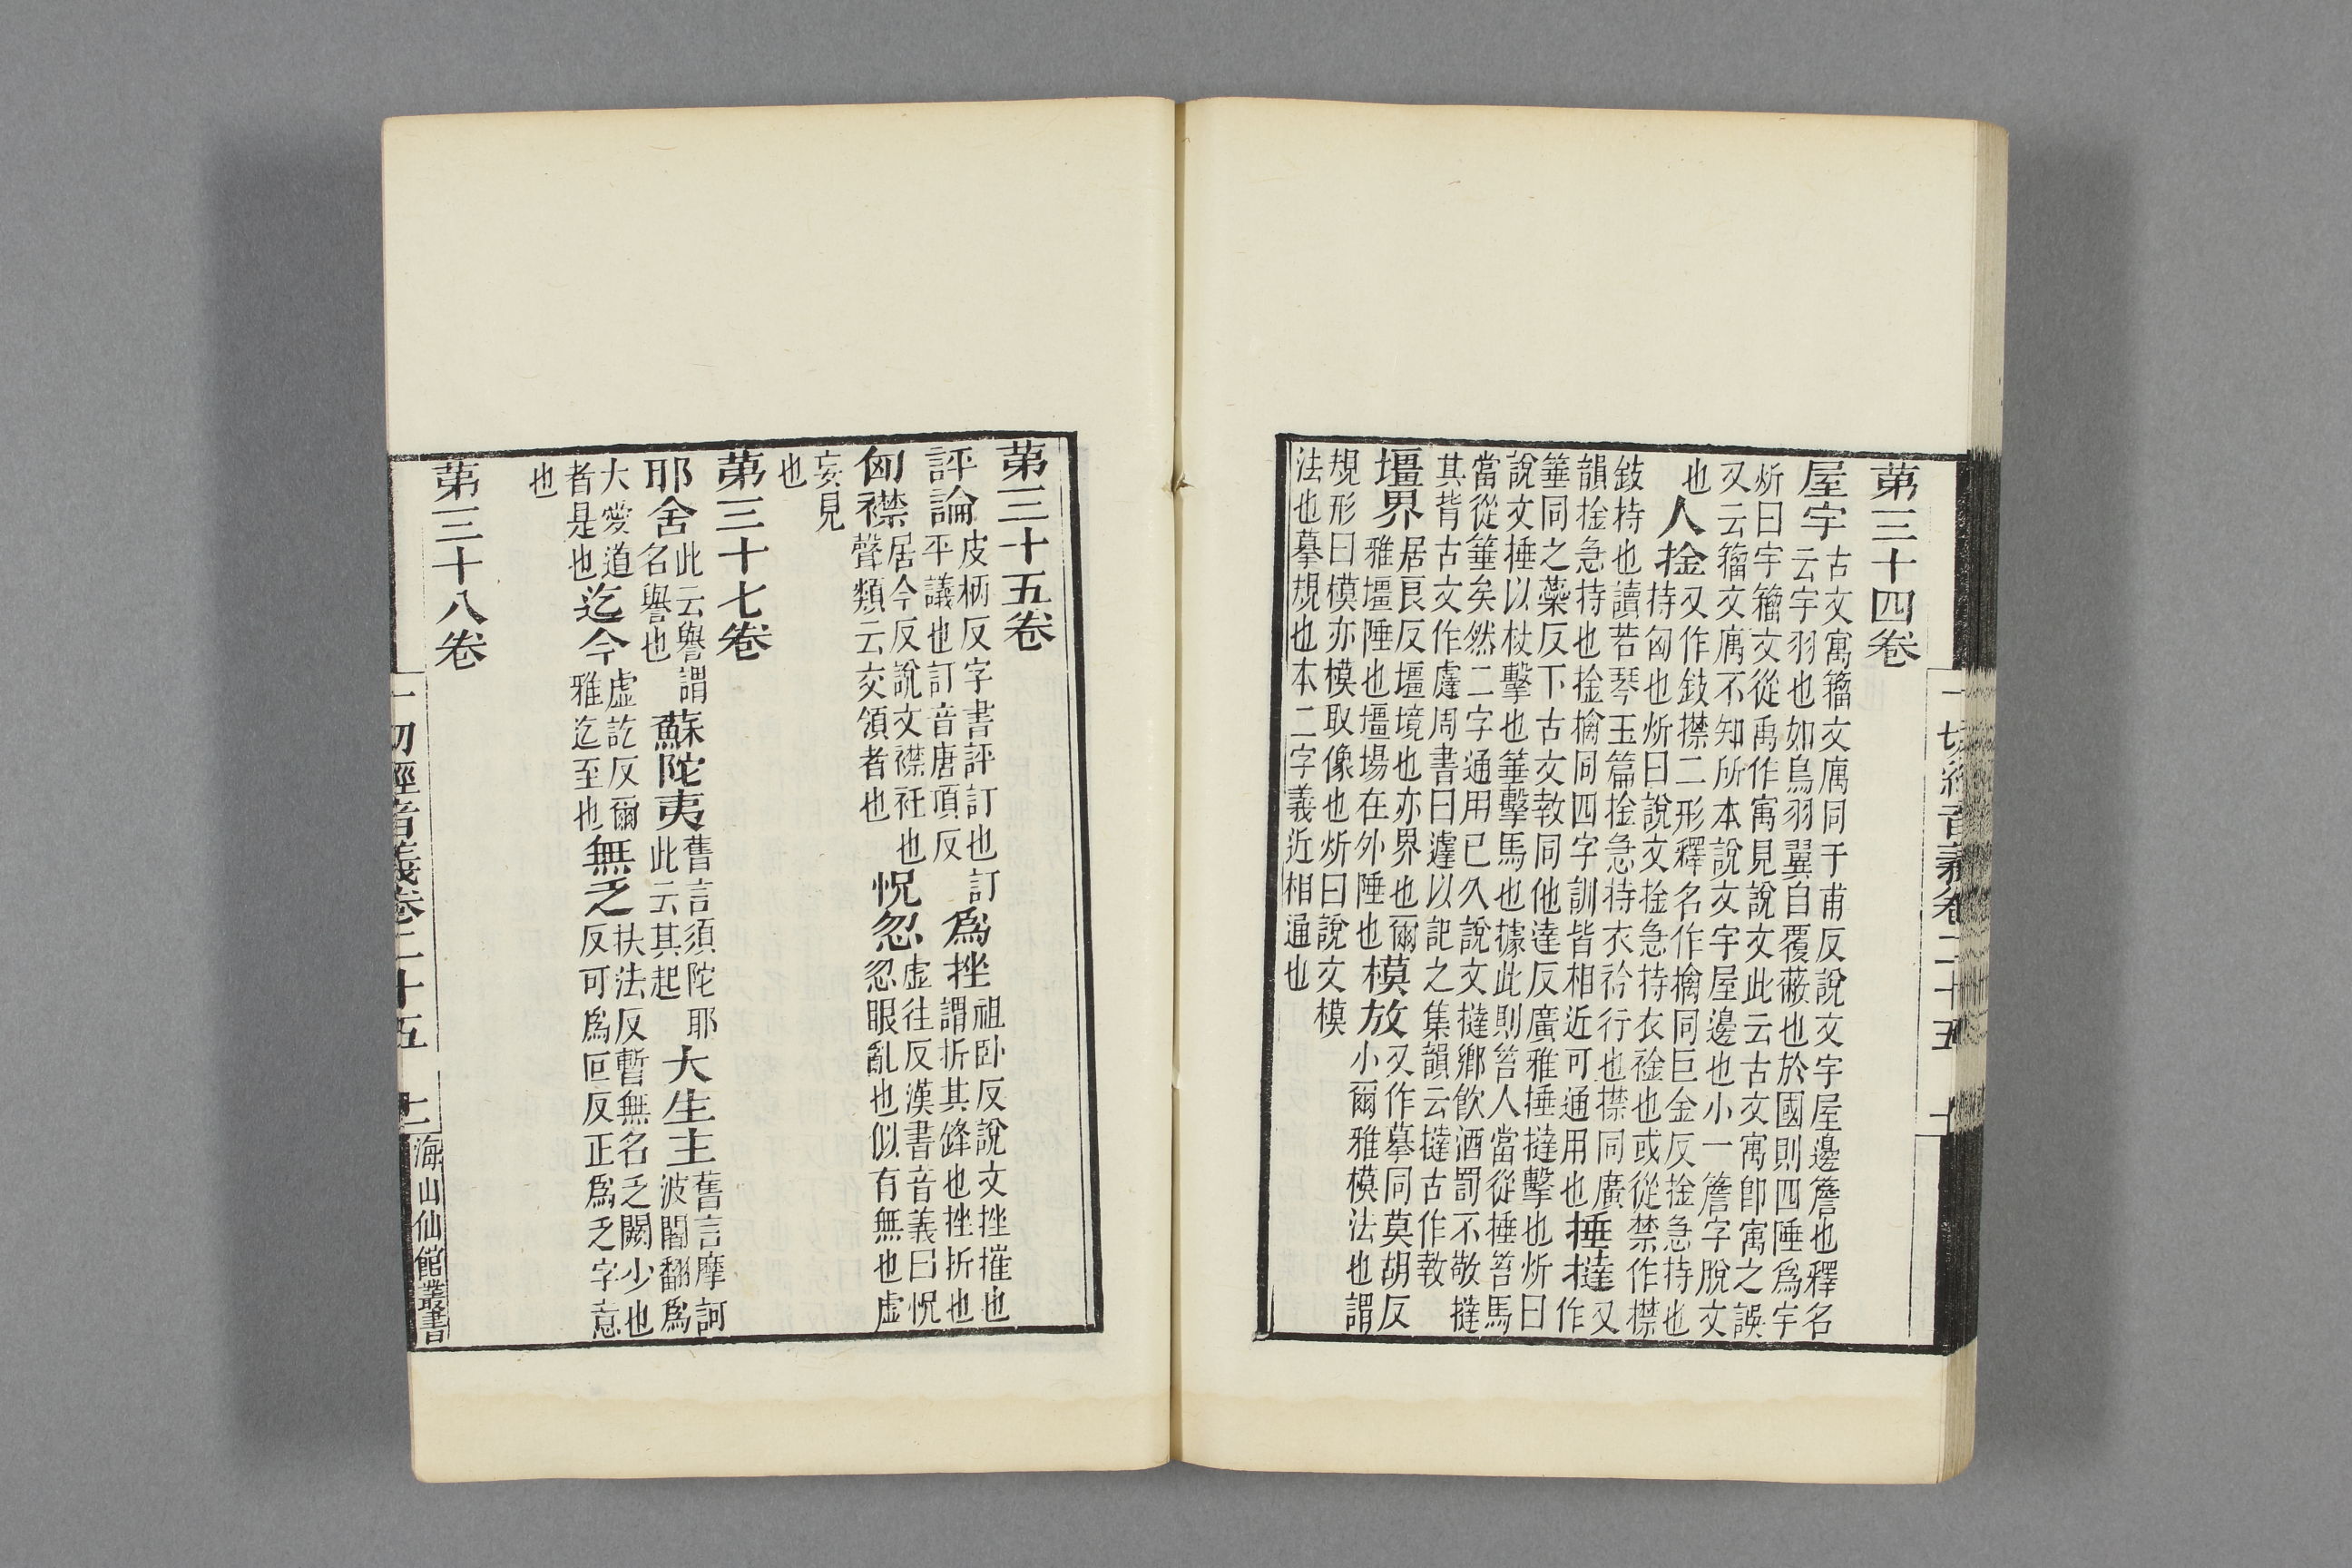 第三十四卷
屋宇 古文㝢籀文庽同于甫反說文宇屋邊簷也釋名
云宇羽也如鳥羽翼自覆蔽也於國則四陲爲宇
炘曰宇籀文從禹作㝢見說文此云古文㝢卽寓之誤
又云籀文庽不知所本說文宇屋邊也小一簷字脫文
也 人捦 又作鈙㩒二形釋名作擒同巨金反捦急持也
持匈也炘曰說文捦急持衣䘳也或從禁作㩒
鈙持也讀若琴玉篇捦急持衣衿行也㩒同廣
韻捦急持也捦擒同四字訓皆相近可通用也 捶撻 又作
箠同之蘂反下古文𢽾同他達反廣雅捶撻擊也炘曰
說文捶以杖擊也箠擊馬也據此則笞人當從捶笞馬
當從箠矣然二字通用已久說文撻鄉飮酒罰不敬撻
其背古文作𨔶周書曰遽以記之集韻云撻古作𢽾
壃界 居良反壃境也亦界也爾
雅壃陲也壃場在外陲也 模放 又作摹同莫胡反
小爾雅模法也謂
規形曰模亦模取像也炘曰說文模
法也摹規也本二字義近相通也
一切經音義卷二十五 十
第三十五卷
評論 皮柄反字書評訂也訂
平議也訂音唐頂反 爲挫 祖卧反說文挫摧也
謂折其鋒也挫折也
匈襟 居今反說文襟衽也
聲類云交領者也 怳忽 虛往反漢書音義曰怳
忽眼亂也似有無也虛
妄見
也
第三十七卷
耶舍 此云譽謂
名譽也 蘇陀夷 舊言須陀耶
此云其起 大生主 舊言摩訶
波闍翻爲
大愛道
者是也 迄今 虛訖反爾
雅迄至也 無乏 扶法反暫無名乏闕少也
反可爲叵反正爲乏字意
也
第三十八卷
一切經音義卷二十五 十一 海山仙館叢書